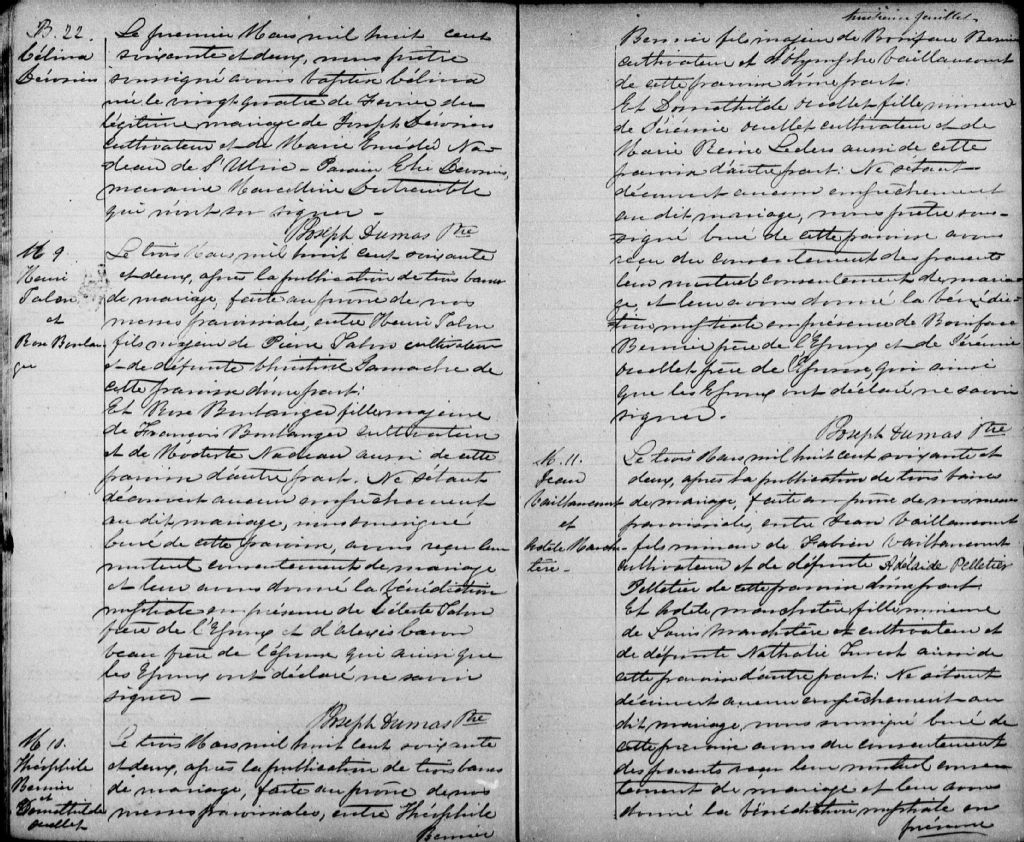 B. 22.
Célina
Le premier Mars mil huit cent
soixante et deux, nous prêtre
soussigné avons baptisé Célina
née le vingt quatre de Fevrier du
légitime mariage de Joseph
cultivateur et de Marie Na-
deau de St Ulric - Parain
maraine Marcelline
qui n'ont su signer -
Joseph Dumas Ptre
M 9
Henri
et
Rose Boulan-
ger
Le trois Mars mil huit cent soixante
et deux, après la publication de trois bans
de mariage, faite au prône de nos
messes paroissiales, entre Henri
fils majeur de Pierre cultivateur
et de défunte Christine Gamache de
cette paroisse d'une part:
Et Rose Boulanger fille majeure
de François Boulanger cultivateur
et de Modeste Nadeau aussi de cette
paroisse d'autre part. Ne s'étant
découvert aucun empêchement
au dit mariage, nous soussigné
Curé de cette paroisse, avons reçu leur
mutuel consentement de mariage
et leur avons donné la bénédiction
nuptiale en présence de Céleste
frère de l'Epoux et d'Alexis Caron
beau frère de l'épouse qui ainsi que
les Epoux ont déclaré ne savoir
signer -
Joseph Dumas Ptre
M 10.
Théophile
Bernier
et
Domethilde
Ouellet
Le trois Mars mil huit cent soixante
et deux, après la publication de trois bans
de mariage, faite au prône de nos
messes paroissiales, entre Théophile
Bernier
huitième feuillet.
Bernier fils majeur de Boniface Bernier
cultivateur et d'Olymphe Vaillancourt
de cette paroisse d'une part:
Et Domethilde Ouellet fille mineure
de Jérémie Ouellet cultivateur et de
Marie Reine Leclerc aussi de cette
paroisse d'autre part: Ne s'étant
découvert aucun empêchement
au dit mariage, nous prêtre sous-
signé Curé de cette paroisse avons
reçu du consentement des parents
leur mutuel consentement de maria-
ge, et leur avons donné la bénédic-
tion nuptiale en présence de Boniface
Bernier père de l'Epoux et de Jérémie
Ouellet père de l'Epouse qui ainsi
que les Epoux ont déclaré ne savoir
signer.
Joseph Dumas Ptre
M. 11.
Jean
Vaillancourt
et
Adèle March-
tère -
Le trois Mars mil huit cent soixante et
deux, après la publication de trois bancs
de mariage, faite au prône de nos messes
paroissiales, entre Jean Vaillancourt
fils mineur de Fabien Vaillancourt
cultivateur et de défunte Adélaide Pelletier
Pelletier de cette paroisse d'une part
Et Adèle fille mineure
de Louis et cultivateur et
de défunte Nathalie Turcot aussi de
cette paroisse d'autre part: Ne s'étant
découvert aucun empêchement au
dit mariage, nous soussigné Curé de
cette paroisse avons du consentement
des parents reçu leur mutuel consen-
tement de mariage et leur avons
donné la bénédiction nuptiale en
présence